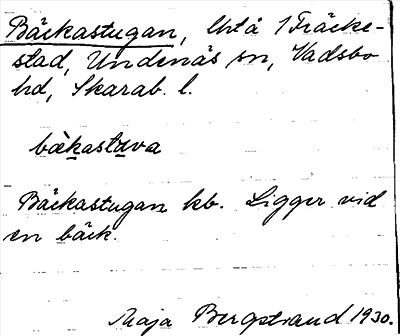 Bäckastugan, lht å 1 Fräcke-
stad, Undenäs sn, Vadsbo
hd, Skarab. l.
bæ̀kastuva
Bäckastugan kb. Ligger vid
en bäck.
Maja Bergstrand 1930.